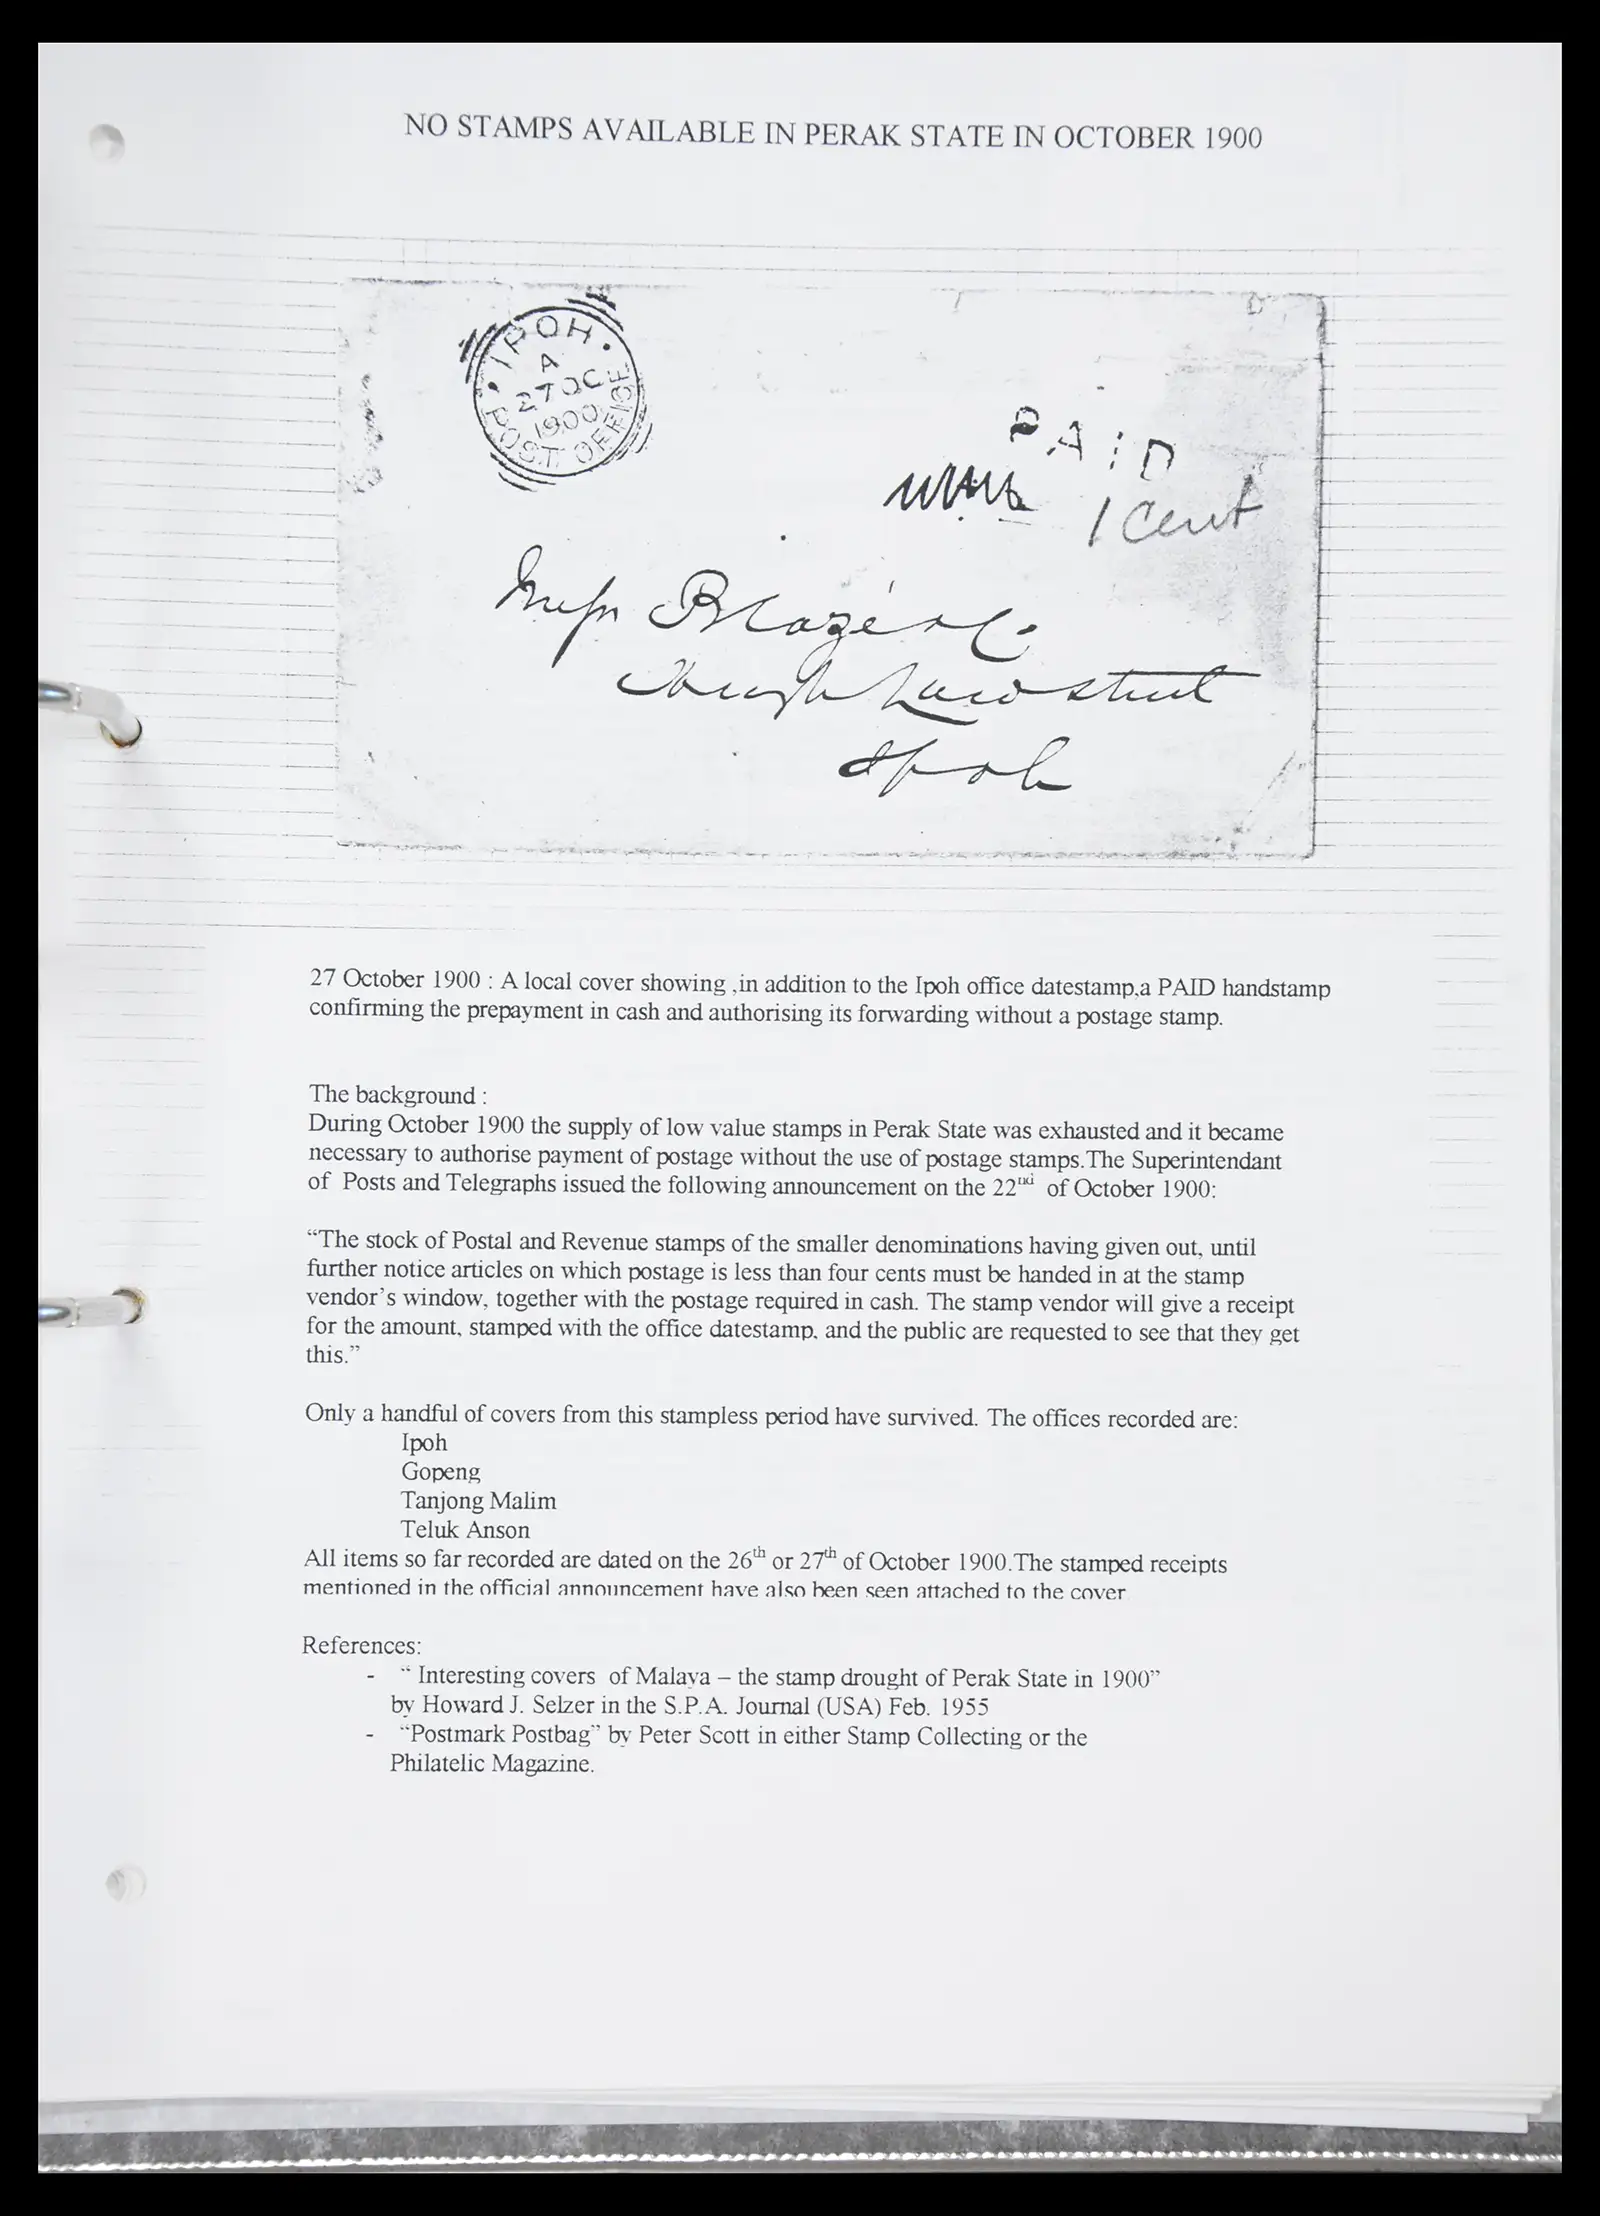 NO STAMPS AVAILABLE IN PERAK STATE IN OCTOBER 1900
IPOH
A
27 OC
1900
POST OFFICE
PAID
1 Cent
Hugh Low street
Ipoh
27 October 1900 : A local cover showing ,in addition to the Ipoh office datestamp,a PAID handstamp
confirming the prepayment in cash and authorising its forwarding without a postage stamp.
The background :
During October 1900 the supply of low value stamps in Perak State was exhausted and it became
necessary to authorise payment of postage without the use of postage stamps.The Superintendant
of Posts and Telegraphs issued the following announcement on the 22nd of October 1900:
“The stock of Postal and Revenue stamps of the smaller denominations having given out, until
further notice articles on which postage is less than four cents must be handed in at the stamp
vendor’s window, together with the postage required in cash. The stamp vendor will give a receipt
for the amount, stamped with the office datestamp, and the public are requested to see that they get
this.”
Only a handful of covers from this stampless period have survived. The offices recorded are:
Ipoh
Gopeng
Tanjong Malim
Teluk Anson
All items so far recorded are dated on the 26th or 27th of October 1900.The stamped receipts
mentioned in the official announcement have also been seen attached to the cover
References:
- “ Interesting covers of Malaya – the stamp drought of Perak State in 1900”
by Howard J. Selzer in the S.P.A. Journal (USA) Feb. 1955
- “Postmark Postbag” by Peter Scott in either Stamp Collecting or the
Philatelic Magazine.